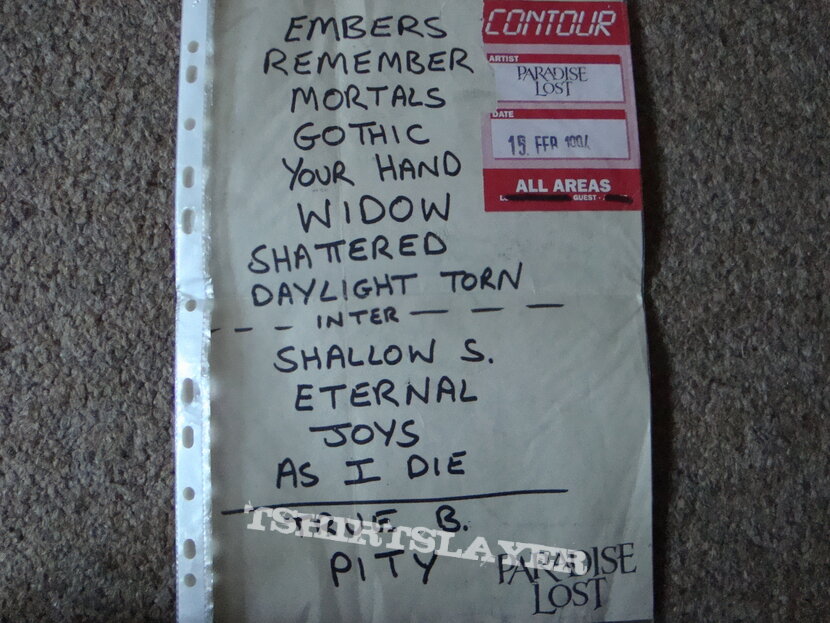 EMBERS
REMEMBER
MORTALS
GOTHIC
YOUR HAND
WIDOW
SHATTERED
DAYLIGHT TORN
- - - INTER - - - -
SHALLOW S.
ETERNAL
JOYS
AS I DIE
B.
PITY
PARADISE
LOST
CONTOUR
ARTIST
PARADISE
LOST
DATE
15. FEB
ALL AREAS
GUEST -
TSHIRTSLAYER